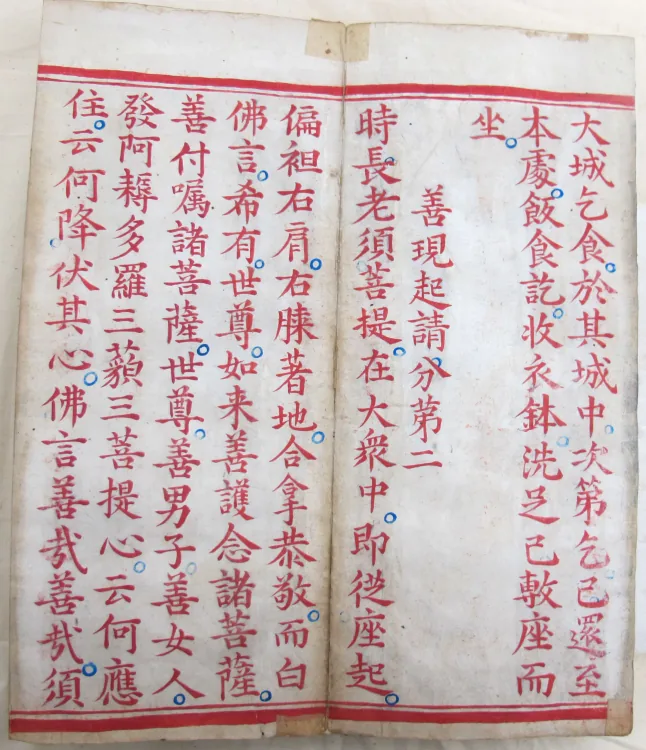 大城乞食。於其城中。次第乞已還至
本處。飯食訖。收衣鉢。洗足已敷座而
坐。
善現起請。分第二
時長老須菩提。在大衆中。即從座起。
偏袒右肩。右膝著地。合拿恭敬。而白
佛言。希有。世尊。如来善護念諸菩薩。
善付嘱諸菩薩。世尊。善男子善女人。
發阿耨多羅三藐三菩提心。云何應
住。云何降。伏其心。佛言善哉善哉。須